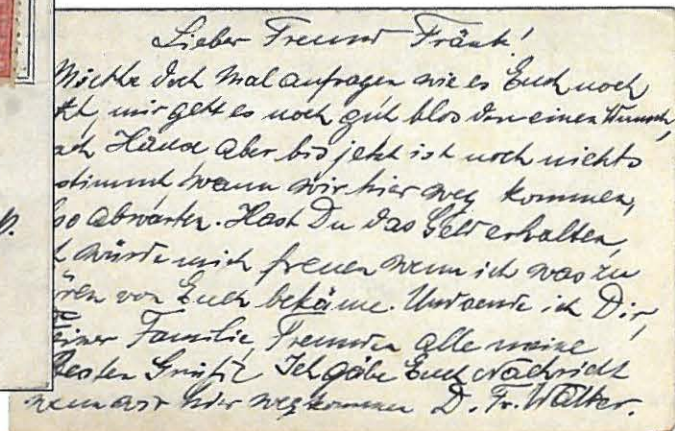 Lieber Freund Fränk!
Möchte doch mal anfragen wie es Euch noch
, mir geht es noch gut blos den einen Wunsch,
Hause aber bis jetzt ist noch nichts
stimmt wann wir hier weg kommen,
so abwarten. Hast Du das Geld erhalten,
würde mich freuen wenn ich was zu
ren von Euch bekäme. Und sende ich Dir,
einer Familie, Freunden alle meine
Besten Grüße Ich gäbe Euch Nachricht
wenn wir hier weg kommen D. Fr. Walter.